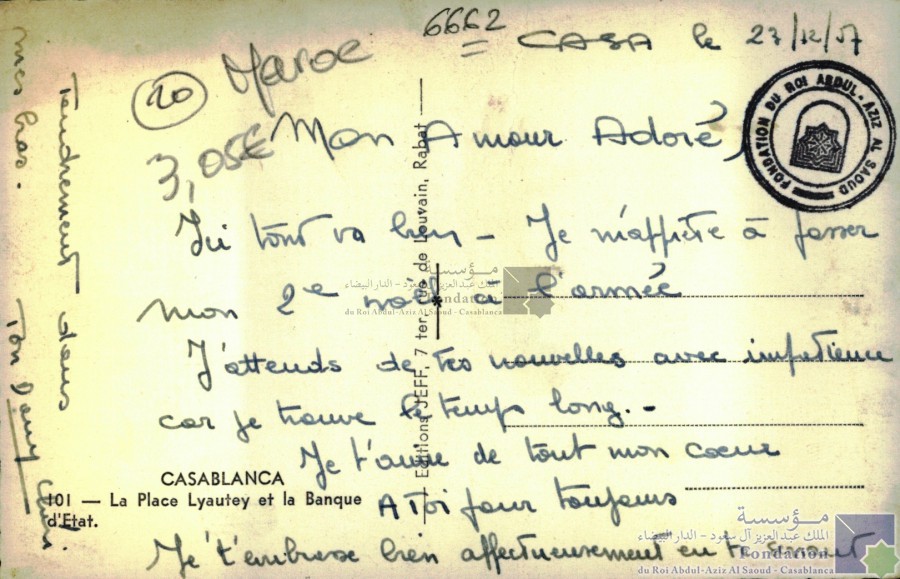 6662
CASA le 27/12/57
20
Maroc
3,05€
Mon Amour Adoré,
Ici tout va bien - Je m'apprête à passer
mon 2e noël à l'armée
J'attends de tes nouvelles avec impatience
car je trouve le temps long.-
Je t'aime de tout mon coeur
A toi pour toujours
Je t'embrasse bien affectueusement en te serrant
Tendrement dans
mes bras.
Ton Dany
CASABLANCA
101 — La Place Lyautey et la Banque
d'Etat.
Editions JEFF, 7 ter, rue de Louvain, Rabat
FONDATION DU ROI ABDUL-AZIZ AL SAOUD
مؤسسة
الملك عبد العزيز آل سعود - الدار البيضاء
Fondation
du Roi Abdul-Aziz Al Saoud - Casablanca
مؤسسة
الملك عبد العزيز آل سعود - الدار البيضاء
Fondation
du Roi Abdul-Aziz Al Saoud - Casablanca